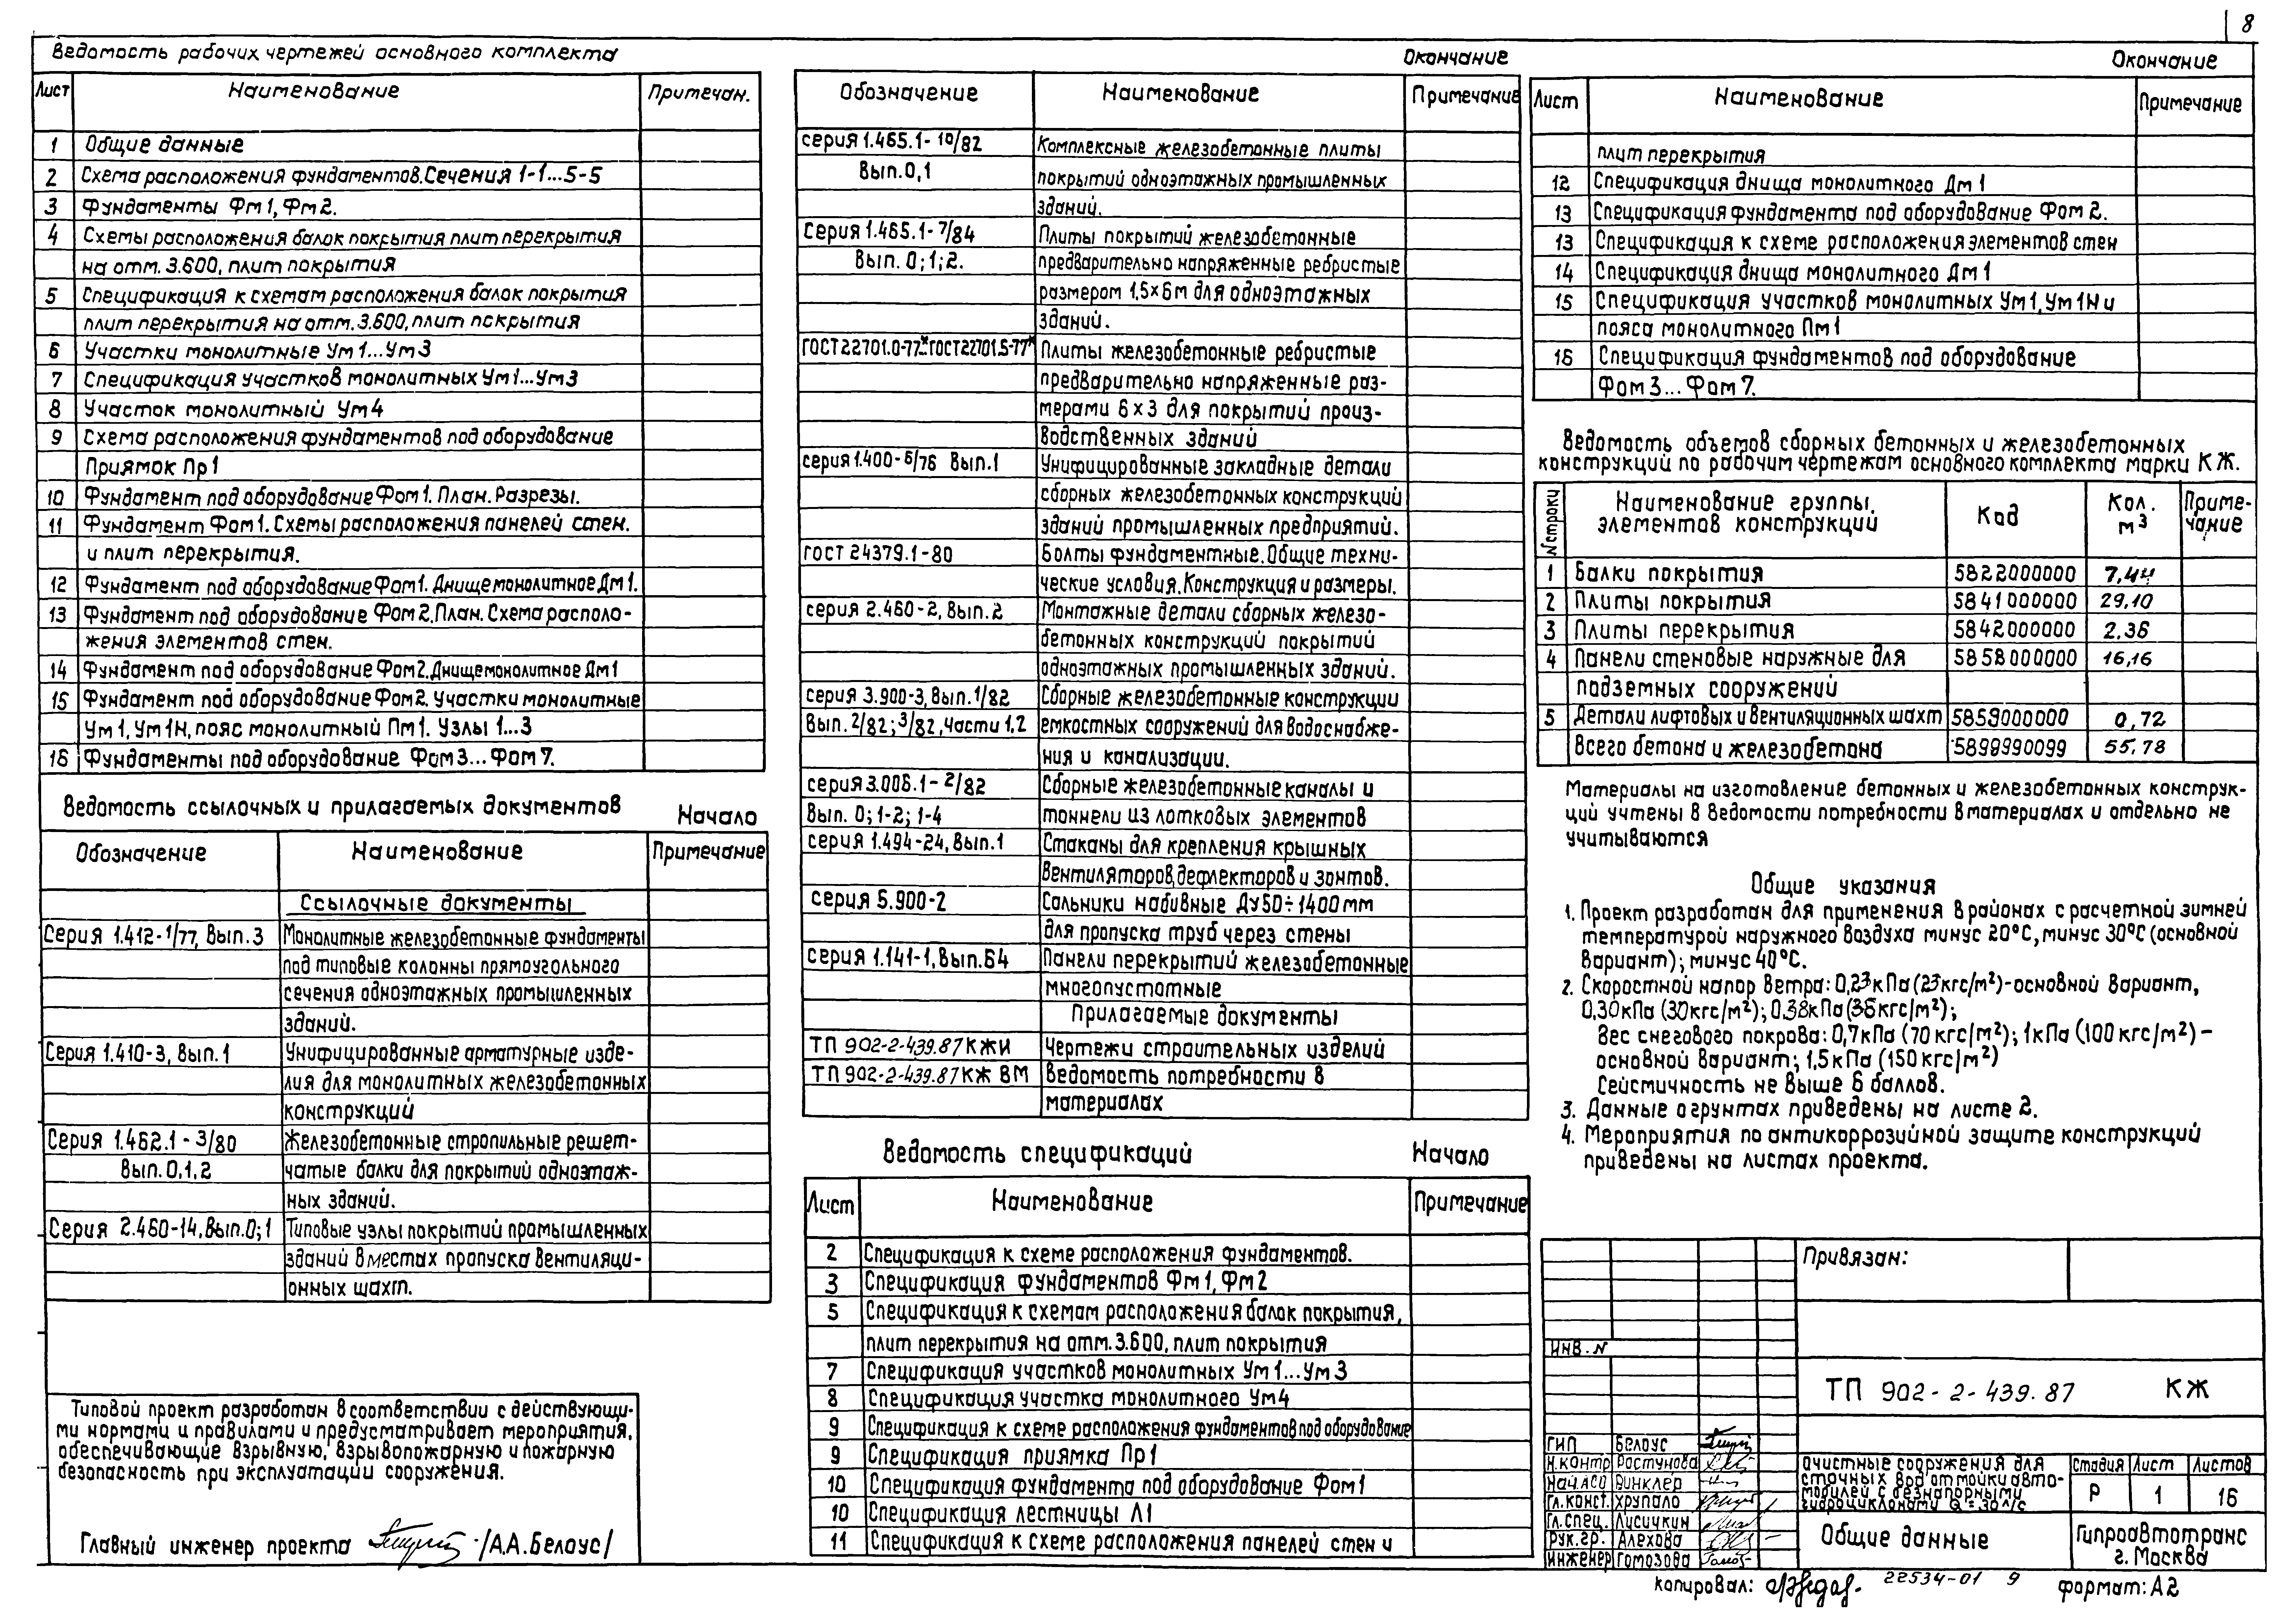 8
Ведомость рабочих чертежей основного комплекта
Лист Наименование Примечан.
1 Общие данные
2 Схема расположения фундаментов. Сечения 1-1...5-5
3 Фундаменты Фм1, Фм2.
4 Схемы расположения балок покрытия плит перекрытия
на отм. 3.600, плит покрытия
5 Спецификация к схемам расположения балок покрытия
плит перекрытия на отм. 3.600, плит покрытия
6 Участки монолитные Ум1...Ум3
7 Спецификация участков монолитных Ум1...Ум3
8 Участок монолитный Ум4
9 Схема расположения фундаментов под оборудование
Приямок Пр1
10 Фундамент под оборудование Фом1. План. Разрезы.
11 Фундамент Фом1. Схемы расположения панелей стен.
и плит перекрытия.
12 Фундамент под оборудование Фом1. Днище монолитное Дм1.
13 Фундамент под оборудование Фом2. План. Схема располо-
жения элементов стен.
14 Фундамент под оборудование Фом2. Днище монолитное Дм1
15 Фундамент под оборудование Фом2. Участки монолитные
Ум1, Ум1Н, пояс монолитный Пм1. Узлы 1...3
16 Фундаменты под оборудование Фом3...Фом7.
Ведомость ссылочных и прилагаемых документов Начало
Обозначение Наименование Примечание
Ссылочные документы
Серия 1.412-1/77, Вып.3 Монолитные железобетонные фундаменты
под типовые колонны прямоугольного
сечения одноэтажных промышленных
зданий.
Серия 1.410-3, Вып.1 Унифицированные арматурные изде-
лия для монолитных железобетонных
конструкций
Серия 1.462.1-3/80 Железобетонные стропильные решет-
Вып.0,1,2 чатые балки для покрытий одноэтаж-
ных зданий.
Серия 2.460-14, Вып.0;1 Типовые узлы покрытий промышленных
зданий в местах пропуска вентиляци-
онных шахт.
Типовой проект разработан в соответствии с действующи-
ми нормами и правилами и предусматривает мероприятия,
обеспечивающие взрывную, взрывопожарную и пожарную
безопасность при эксплуатации сооружения.
Главный инженер проекта /А.А.Белоус/
Окончание
Обозначение Наименование Примечание
серия 1.465.1-10/82 Комплексные железобетонные плиты
Вып.0,1 покрытий одноэтажных промышленных
зданий.
Серия 1.465.1-7/84 Плиты покрытий железобетонные
Вып. 0;1;2. предварительно напряженные ребристые
размером 1,5×6м для одноэтажных
зданий.
ГОСТ 22701.0-77*...ГОСТ 22701.5-77* Плиты железобетонные ребристые
предварительно напряженные раз-
мерами 6×3 для покрытий произ-
водственных зданий
серия 1.400-6/76 Вып.1 Унифицированные закладные детали
сборных железобетонных конструкций
зданий промышленных предприятий.
ГОСТ 24379.1-80 Болты фундаментные. Общие техни-
ческие условия. Конструкция и размеры.
серия 2.460-2, Вып.2 Монтажные детали сборных железо-
бетонных конструкций покрытий
одноэтажных промышленных зданий.
серия 3.900-3, Вып.1/82 Сборные железобетонные конструкции
Вып. 2/82; 3/82, Части 1.2 емкостных сооружений для водоснабже-
ния и канализации.
серия 3.006.1-2/82 Сборные железобетонные каналы и
Вып. 0; 1-2; 1-4 тоннели из лотковых элементов
серия 1.494-24, Вып.1 Стаканы для крепления крышных
вентиляторов, дефлекторов и зонтов.
серия 5.900-2 Сальники набивные Ду50÷1400мм
для пропуска труб через стены
серия 1.141-1, Вып.64 Панели перекрытий железобетонные
многопустотные
Прилагаемые документы
ТП 902-2-439.87 КЖИ Чертежи строительных изделий
ТП 902-2-439.87 КЖ ВМ Ведомость потребности в
материалах
Ведомость спецификаций Начало
Лист Наименование Примечание
2 Спецификация к схеме расположения фундаментов.
3 Спецификация фундаментов Фм1, Фм2
5 Спецификация к схемам расположения балок покрытия,
плит перекрытия на отм. 3.600, плит покрытия
7 Спецификация участков монолитных Ум1...Ум3
8 Спецификация участка монолитного Ум4
9 Спецификация к схеме расположения фундаментов под оборудование
9 Спецификация приямка Пр1
10 Спецификация фундамента под оборудование Фом1
10 Спецификация лестницы Л1
11 Спецификация к схеме расположения панелей стен и
Окончание
Лист Наименование Примечание
плит перекрытия
12 Спецификация днища монолитного Дм1
13 Спецификация фундамента под оборудование Фом2.
13 Спецификация к схеме расположения элементов стен
14 Спецификация днища монолитного Дм1
15 Спецификация участков монолитных Ум1, Ум1Н и
пояса монолитного Пм1
16 Спецификация фундаментов под оборудование
Фом3...Фом7.
Ведомость объемов сборных бетонных и железобетонных
конструкций по рабочим чертежам основного комплекта марки КЖ.
№ строки Наименование группы, элементов конструкций Код Кол. м³ Приме-чание
1 Балки покрытия 5822000000 7,44
2 Плиты покрытия 5841000000 29,10
3 Плиты перекрытия 5842000000 2.36
4 Панели стеновые наружные для 5858000000 16,16
подземных сооружений
5 Детали лифтовых и вентиляционных шахт 5859000000 0,72
Всего бетона и железобетона 5899990099 55,78
Материалы на изготовление бетонных и железобетонных конструк-
ций учтены в ведомости потребности в материалах и отдельно не
учитываются
Общие указания
1. Проект разработан для применения в районах с расчетной зимней
температурой наружного воздуха минус 20°С, минус 30°С (основной
вариант); минус 40°С.
2. Скоростной напор ветра: 0,23кПа (23кгс/м²)-основной вариант,
0,30кПа (30кгс/м²); 0,38кПа (38кгс/м²);
Вес снегового покрова: 0,7кПа (70кгс/м²); 1кПа (100кгс/м²) -
основной вариант; 1,5кПа (150кгс/м²)
Сейсмичность не выше 6 баллов.
3. Данные о грунтах приведены на листе 2.
4. Мероприятия по антикоррозийной защите конструкций
приведены на листах проекта.
Привязан:
Инв. N
ТП 902-2-439.87 КЖ
ГИП Белоус
Н.контр Растунова
Нач.АСО Винклер
Гл.конст. Хрупало
Гл.спец. Лисичкин
Рук.гр. Алехова
Инженер Гомозова
Очистные сооружения для
сточных вод от мойки авто-
мобилей с безнапорными
гидроциклонами Q=30 л/с
Стадия Лист Листов
Р 1 16
Общие данные
Гипроавтотранс
г. Москва
Копировал: 22534-01 9 формат: А2